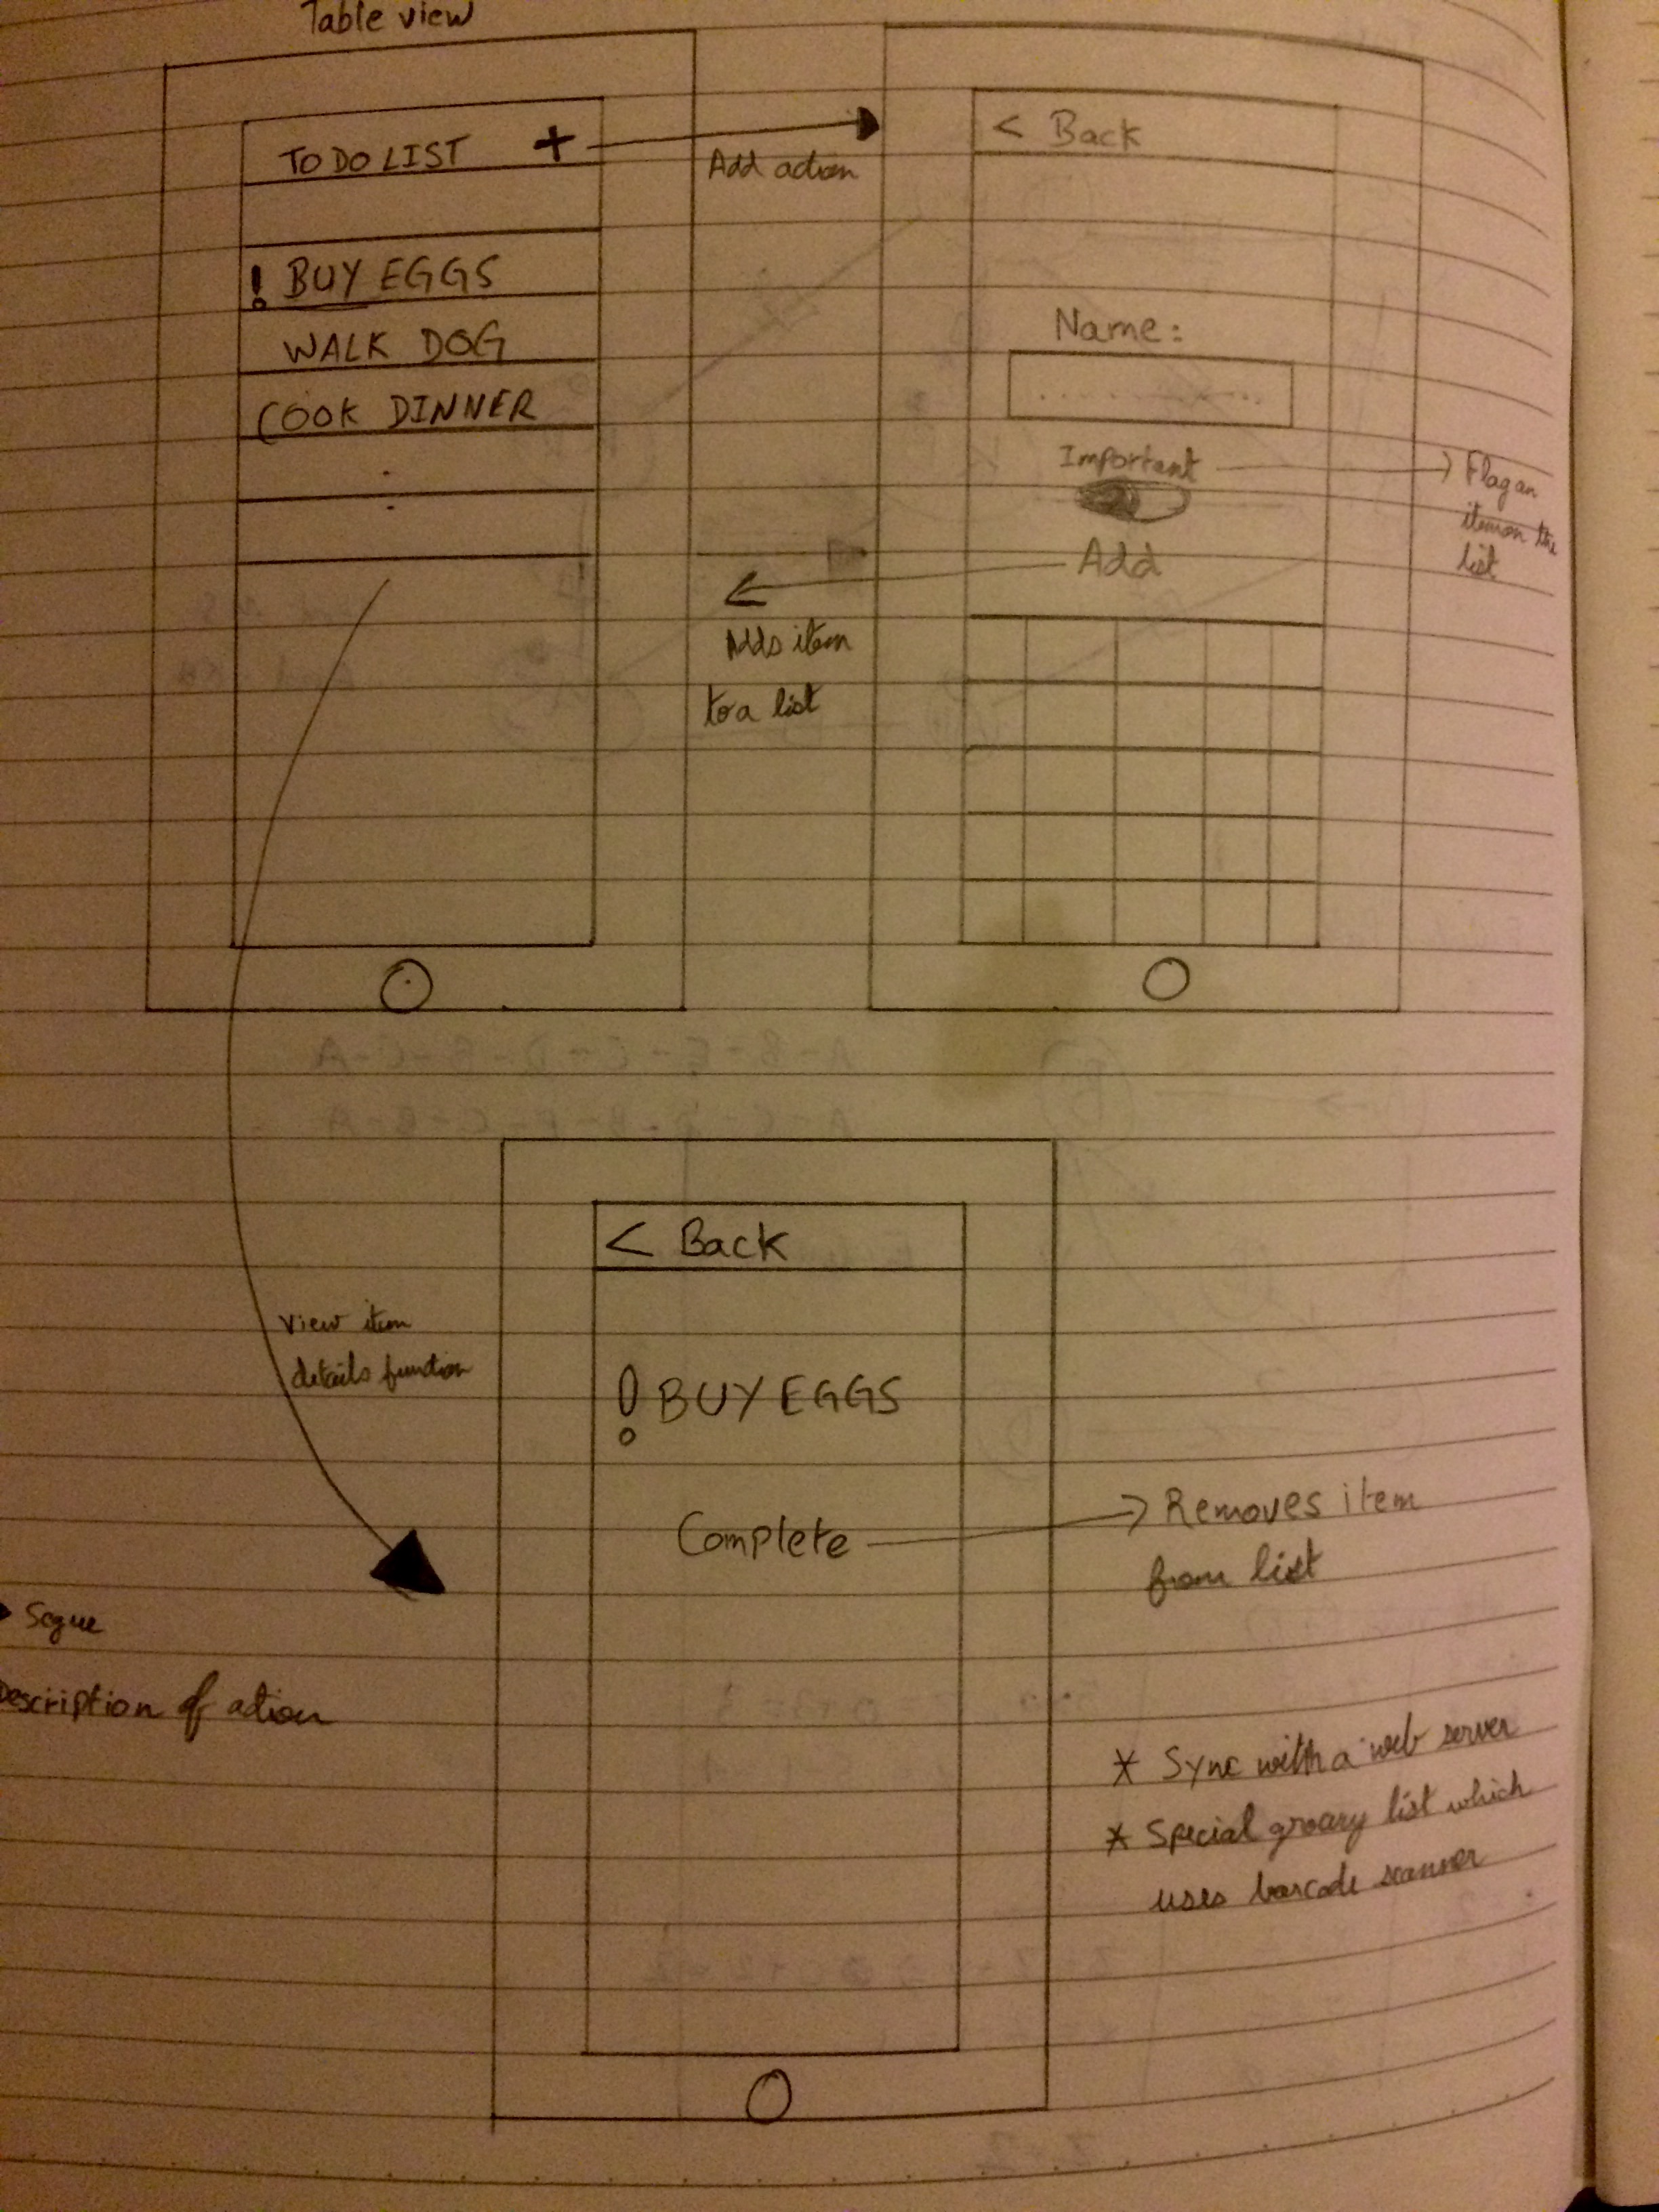 Table view
TO DO LIST +
! BUY EGGS
WALK DOG
COOK DINNER
Add action
< Back
Name:
Important
Flag an
item on the
list
Add
Adds item
to a list
View item
details function
< Back
! BUY EGGS
Complete
Removes item
from list
Segue
Description of action
* Sync with a web server
* Special groary list which
uses barcode scanner